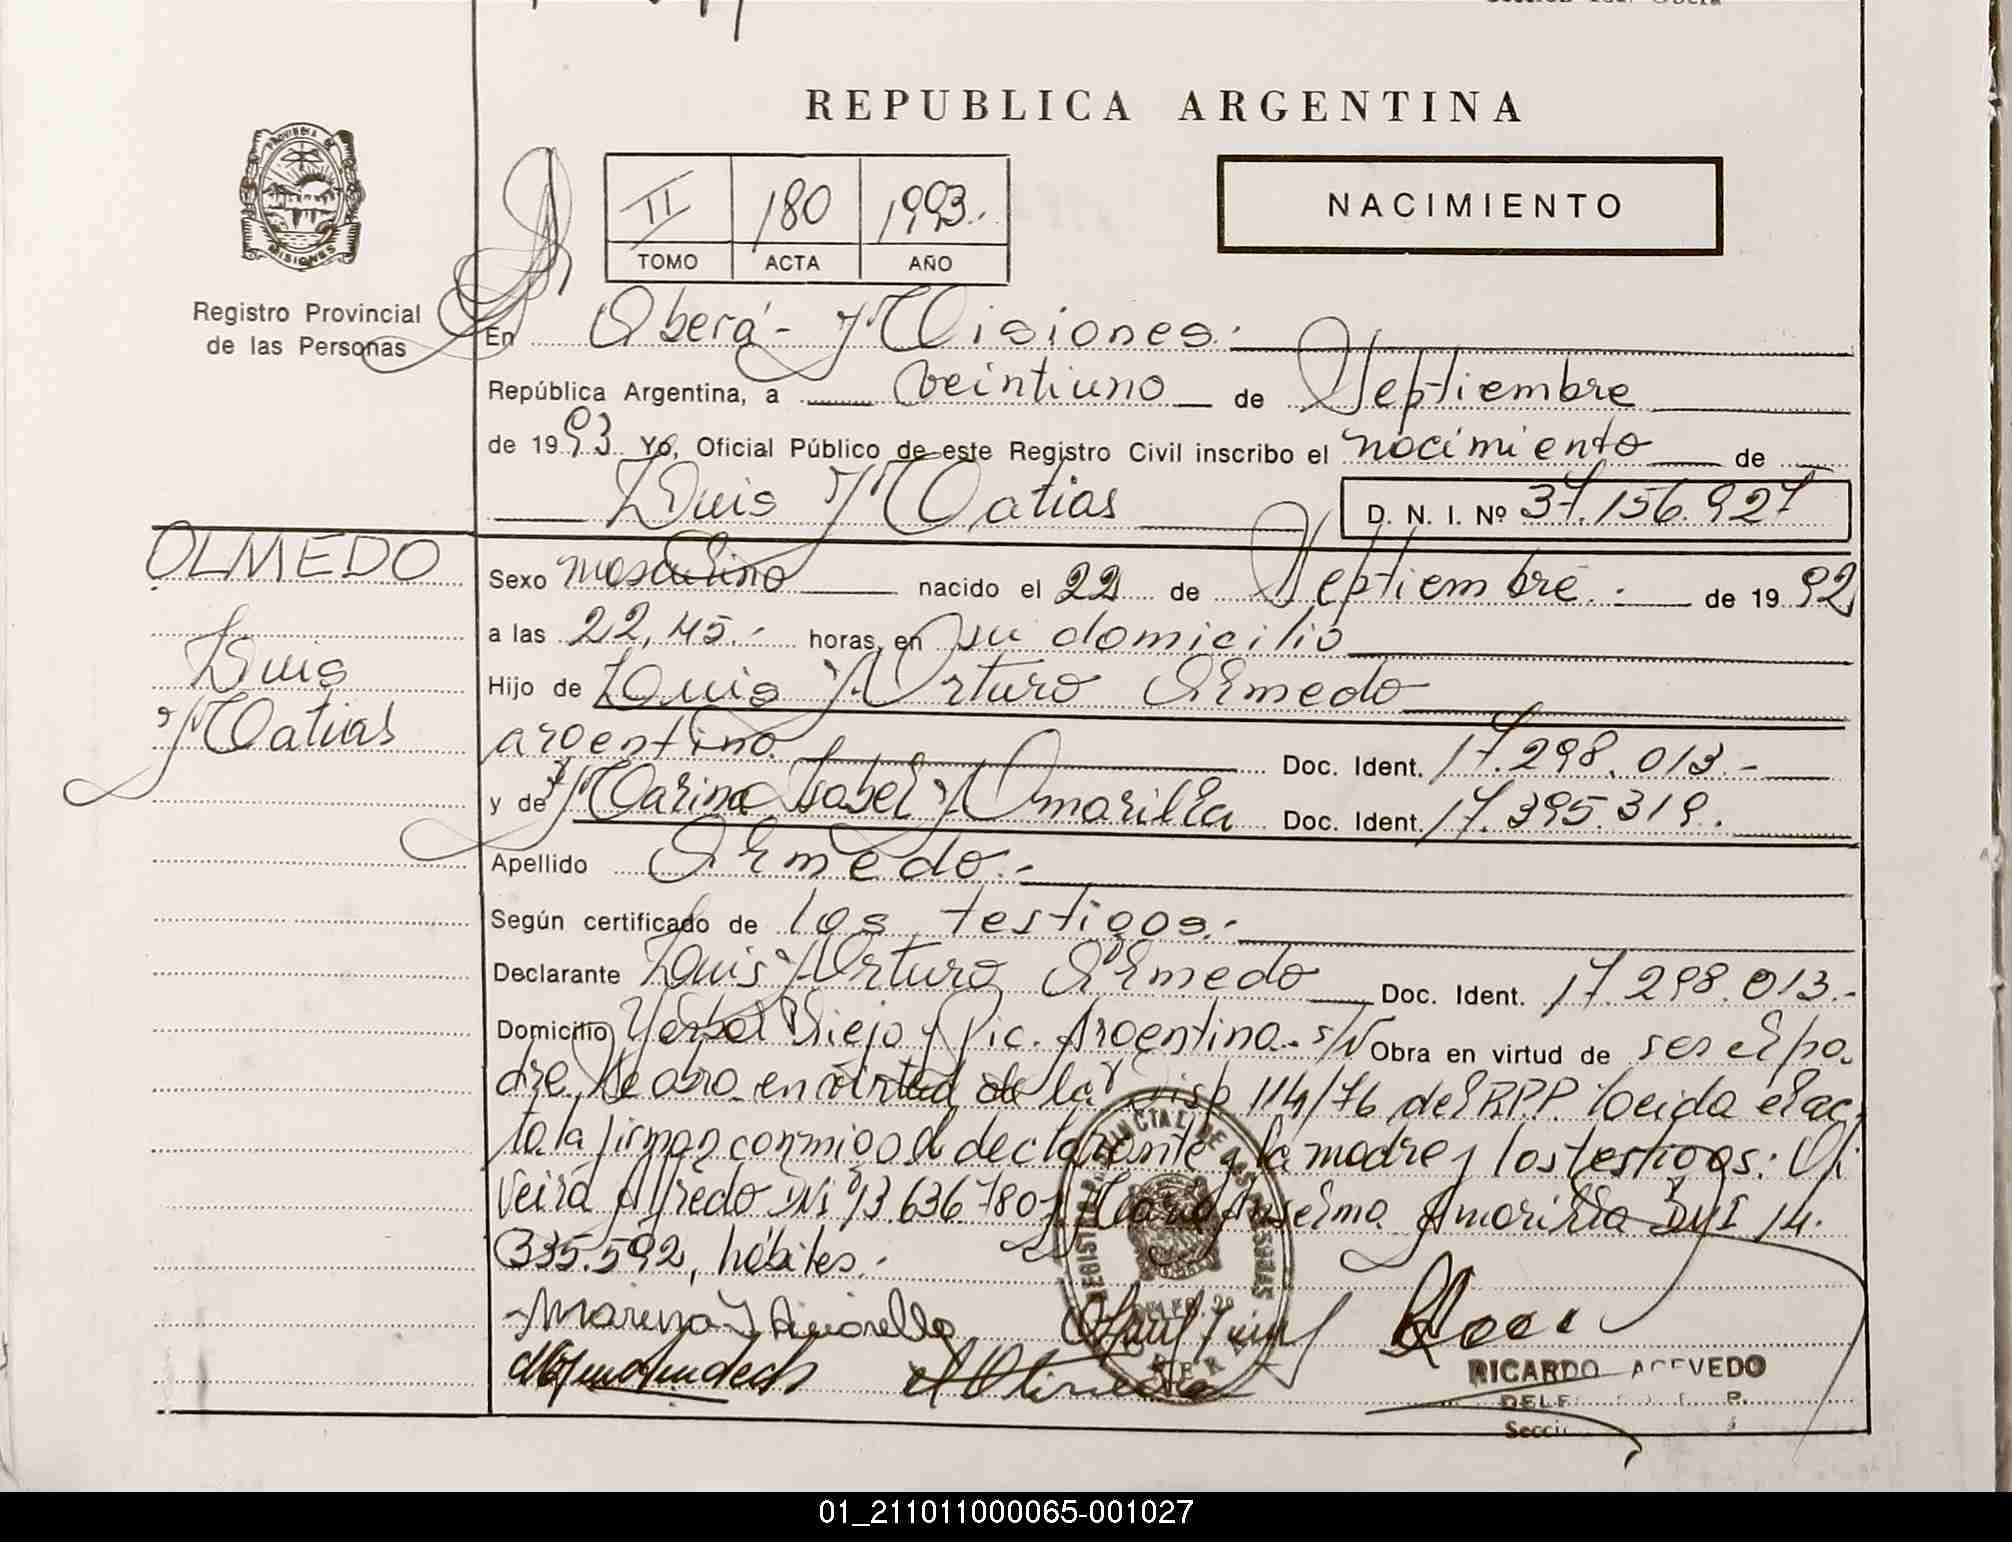 REPUBLICA ARGENTINA
PROVINCIA DE MISIONES
Registro Provincial
de las Personas
II 180 1993.-
TOMO ACTA AÑO
NACIMIENTO
En Oberá - Misiones.-
República Argentina, a veintiuno de Septiembre
de 1993 Yo, Oficial Público de este Registro Civil inscribo el nacimiento de
Luis Matias D. N. I. Nº 37.156.927
OLMEDO
Luis
Matias
Sexo masculino nacido el 22 de Septiembre.- de 1992
a las 22,45.- horas, en su domicilio
Hijo de Luis Arturo Olmedo
argentino. Doc. Ident. 17.298.013.-
y de Marina Isabel Amarilla Doc. Ident. 17.395.319.
Apellido Olmedo.-
Según certificado de los testigos.-
Declarante Luis Arturo Olmedo Doc. Ident. 17.298.013.-
Domicilio Yerbal Viejo y Pic. Argentina. s/N Obra en virtud de ser el pa
dre. Se obra en virtud de la Disp 114/76 del R.P.P. Leida el ac
ta la firman conmigo el declarante y la madre y los testigos: Oli
veira Alfredo DNI 13.636.780 y Anselmo Amarilla DNI 14.
335.592, hábiles.-
Marina I Amarilla
A Oliveira
RICARDO ACEVEDO
01_211011000065-001027